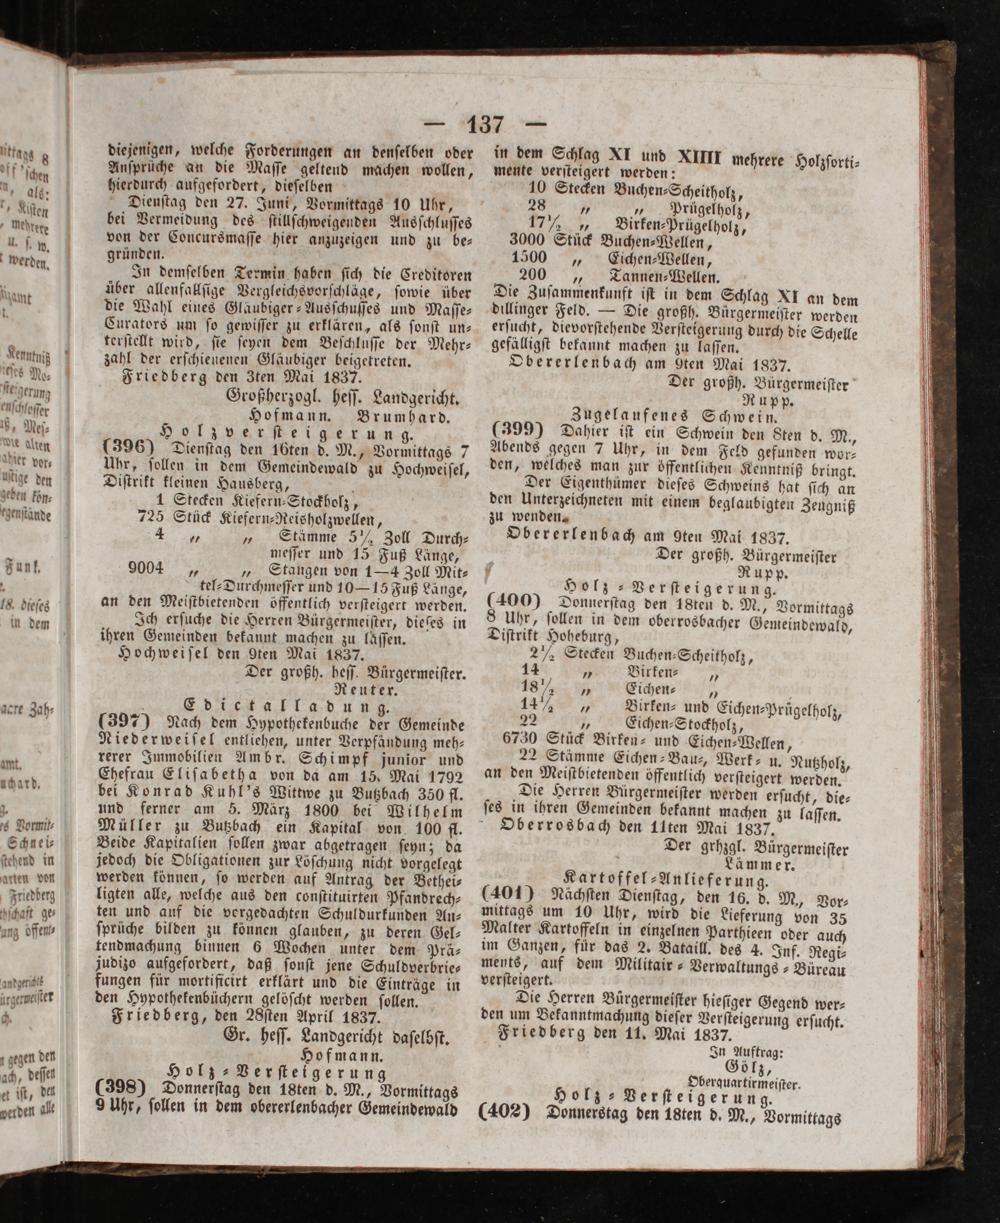 — 137 —
diejenigen, welche Forderungen an denselben oder
Ansprüche an die Masse geltend machen wollen,
hierdurch aufgefordert, dieselben
Dienstag den 27. Juni, Vormittags 10 Uhr,
bei Vermeidung des stillschweigenden Ausschlusses
von der Concursmasse hier anzuzeigen und zu be-
gründen.
In demselben Termin haben sich die Creditoren
über allenfallsige Vergleichsvorschläge, sowie über
die Wahl eines Gläubiger-Ausschusses und Masse-
Curators um so gewisser zu erklären, als sonst un-
terstellt wird, sie seyen dem Beschlusse der Mehr-
zahl der erschienenen Gläubiger beigetreten.
Friedberg den 3ten Mai 1837.
Großherzogl. hess. Landgericht.
Hofmann. Brumhard.
Holzversteigerung.
(396) Dienstag den 16ten d. M., Vormittags 7
Uhr, sollen in dem Gemeindewald zu Hochweisel,
Distrikt kleinen Hausberg,
1 Stecken Kiefern-Stockholz,
725 Stück Kiefern-Reisholzwellen,
4 „ „ Stämme 5½ Zoll Durch-
messer und 15 Fuß Länge,
9004 „ „ Stangen von 1—4 Zoll Mit-
tel-Durchmesser und 10—15 Fuß Länge,
an den Meistbietenden öffentlich versteigert werden.
Ich ersuche die Herren Bürgermeister, dieses in
ihren Gemeinden bekannt machen zu lassen.
Hochweisel den 9ten Mai 1837.
Der großh. hess. Bürgermeister.
Reuter.
Edictalladung.
(397) Nach dem Hypothekenbuche der Gemeinde
Niederweisel entliehen, unter Verpfändung meh-
rerer Immobilien Ambr. Schimpf junior und
Ehefrau Elisabetha von da am 15. Mai 1792
bei Konrad Kuhl's Wittwe zu Butzbach 350 fl.
und ferner am 5. März 1800 bei Wilhelm
Müller zu Butzbach ein Kapital von 100 fl.
Beide Kapitalien sollen zwar abgetragen seyn; da
jedoch die Obligationen zur Löschung nicht vorgelegt
werden können, so werden auf Antrag der Bethei-
ligten alle, welche aus den constituirten Pfandrech-
ten und auf die vorgedachten Schuldurkunden An-
sprüche bilden zu können glauben, zu deren Gel-
tendmachung binnen 6 Wochen unter dem Prä-
judizo aufgefordert, daß sonst jene Schuldverbrie-
fungen für mortificirt erklärt und die Einträge in
den Hypothekenbüchern gelöscht werden sollen.
Friedberg, den 28sten April 1837.
Gr. hess. Landgericht daselbst.
Hofmann.
Holz-Versteigerung
(398) Donnerstag den 18ten d. M., Vormittags
9 Uhr, sollen in dem obererlenbacher Gemeindewald
in dem Schlag XI und XIIII mehrere Holzsorti-
mente versteigert werden:
10 Stecken Buchen-Scheitholz,
28 „ „ Prügelholz,
17½ „ Birken-Prügelholz,
3000 Stück Buchen-Wellen,
1500 „ Eichen-Wellen,
200 „ Tannen-Wellen.
Die Zusammenkunft ist in dem Schlag XI an dem
dillinger Feld. — Die großh. Bürgermeister werden
ersucht, dievorstehende Versteigerung durch die Schelle
gefälligst bekannt machen zu lassen.
Obererlenbach am 9ten Mai 1837.
Der großh. Bürgermeister
Rupp.
Zugelaufenes Schwein.
(399) Dahier ist ein Schwein den 8ten d. M.,
Abends gegen 7 Uhr, in dem Feld gefunden wor-
den, welches man zur öffentlichen Kenntniß bringt.
Der Eigenthümer dieses Schweins hat sich an
den Unterzeichneten mit einem beglaubigten Zeugniß
zu wenden.
Obererlenbach am 9ten Mai 1837.
Der großh. Bürgermeister
Rupp.
Holz-Versteigerung.
(400) Donnerstag den 18ten d. M., Vormittags
8 Uhr, sollen in dem oberrosbacher Gemeindewald,
Distrikt Hoheburg,
2½ Stecken Buchen-Scheitholz,
14 „ Birken- „
18½ „ Eichen- „
14½ „ Birken- und Eichen-Prügelholz,
22 „ Eichen-Stockholz,
6730 Stück Birken- und Eichen-Wellen,
22 Stämme Eichen-Bau-, Werk- u. Nutzholz,
an den Meistbietenden öffentlich versteigert werden.
Die Herren Bürgermeister werden ersucht, die-
ses in ihren Gemeinden bekannt machen zu lassen.
Oberrosbach den 11ten Mai 1837.
Der grhzgl. Bürgermeister
Lämmer.
Kartoffel-Anlieferung.
(401) Nächsten Dienstag, den 16. d. M., Vor-
mittags um 10 Uhr, wird die Lieferung von 35
Malter Kartoffeln in einzelnen Parthieen oder auch
im Ganzen, für das 2. Bataill. des 4. Inf. Regi-
ments, auf dem Militair-Verwaltungs-Büreau
versteigert.
Die Herren Bürgermeister hiesiger Gegend wer-
den um Bekanntmachung dieser Versteigerung ersucht.
Friedberg den 11. Mai 1837.
In Auftrag:
Gölz,
Oberquartirmeister.
Holz-Versteigerung.
(402) Donnerstag den 18ten d. M., Vormittags